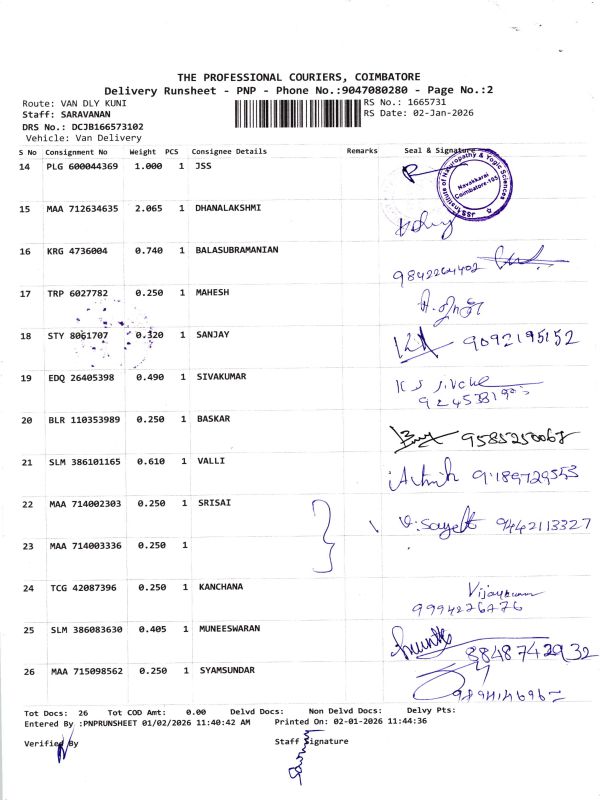 THE PROFESSIONAL COURIERS, COIMBATORE
Delivery Runsheet - PNP - Phone No.:9047080280 - Page No.:2
Route: VAN DLY KUNI RS No.: 1665731
Staff: SARAVANAN RS Date: 02-Jan-2026
DRS No.: DCJB166573102
Vehicle: Van Delivery
S No Consignment No Weight PCS Consignee Details Remarks Seal & Signature
14 PLG 600044369 1.000 1 JSS
JSS Institute of Naturopathy & Yogic Sciences
Navakkarai
Coimbatore-105
15 MAA 712634635 2.065 1 DHANALAKSHMI
16 KRG 4736004 0.740 1 BALASUBRAMANIAN
9842264402
17 TRP 6027782 0.250 1 MAHESH
18 STY 8061707 0.320 1 SANJAY
9092195152
19 EDQ 26405398 0.490 1 SIVAKUMAR
20 BLR 110353989 0.250 1 BASKAR
9585250067
21 SLM 386101165 0.610 1 VALLI
22 MAA 714002303 0.250 1 SRISAI
9442113327
23 MAA 714003336 0.250 1
24 TCG 42087396 0.250 1 KANCHANA
25 SLM 386083630 0.405 1 MUNEESWARAN
8848742932
26 MAA 715098562 0.250 1 SYAMSUNDAR
Tot Docs: 26 Tot COD Amt: 0.00 Delvd Docs: Non Delvd Docs: Delvy Pts:
Entered By :PNPRUNSHEET 01/02/2026 11:40:42 AM Printed On: 02-01-2026 11:44:36
Verified By Staff Signature